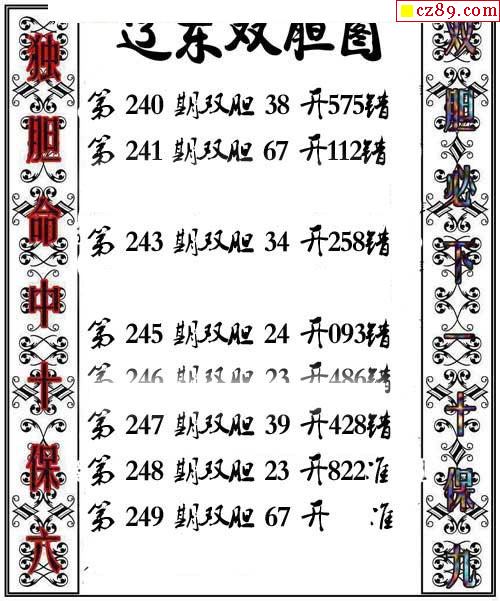 cz89.com
辽东双胆图
独胆命中十保六
第 240 期双胆 38 开575错
第 241 期双胆 67 开112错
第 243 期双胆 34 开258错
第 245 期双胆 24 开093错
第 246 期双胆 23 开486错
第 247 期双胆 39 开428错
第 248 期双胆 23 开822准
第 249 期双胆 67 开 准
双胆必下一十保九